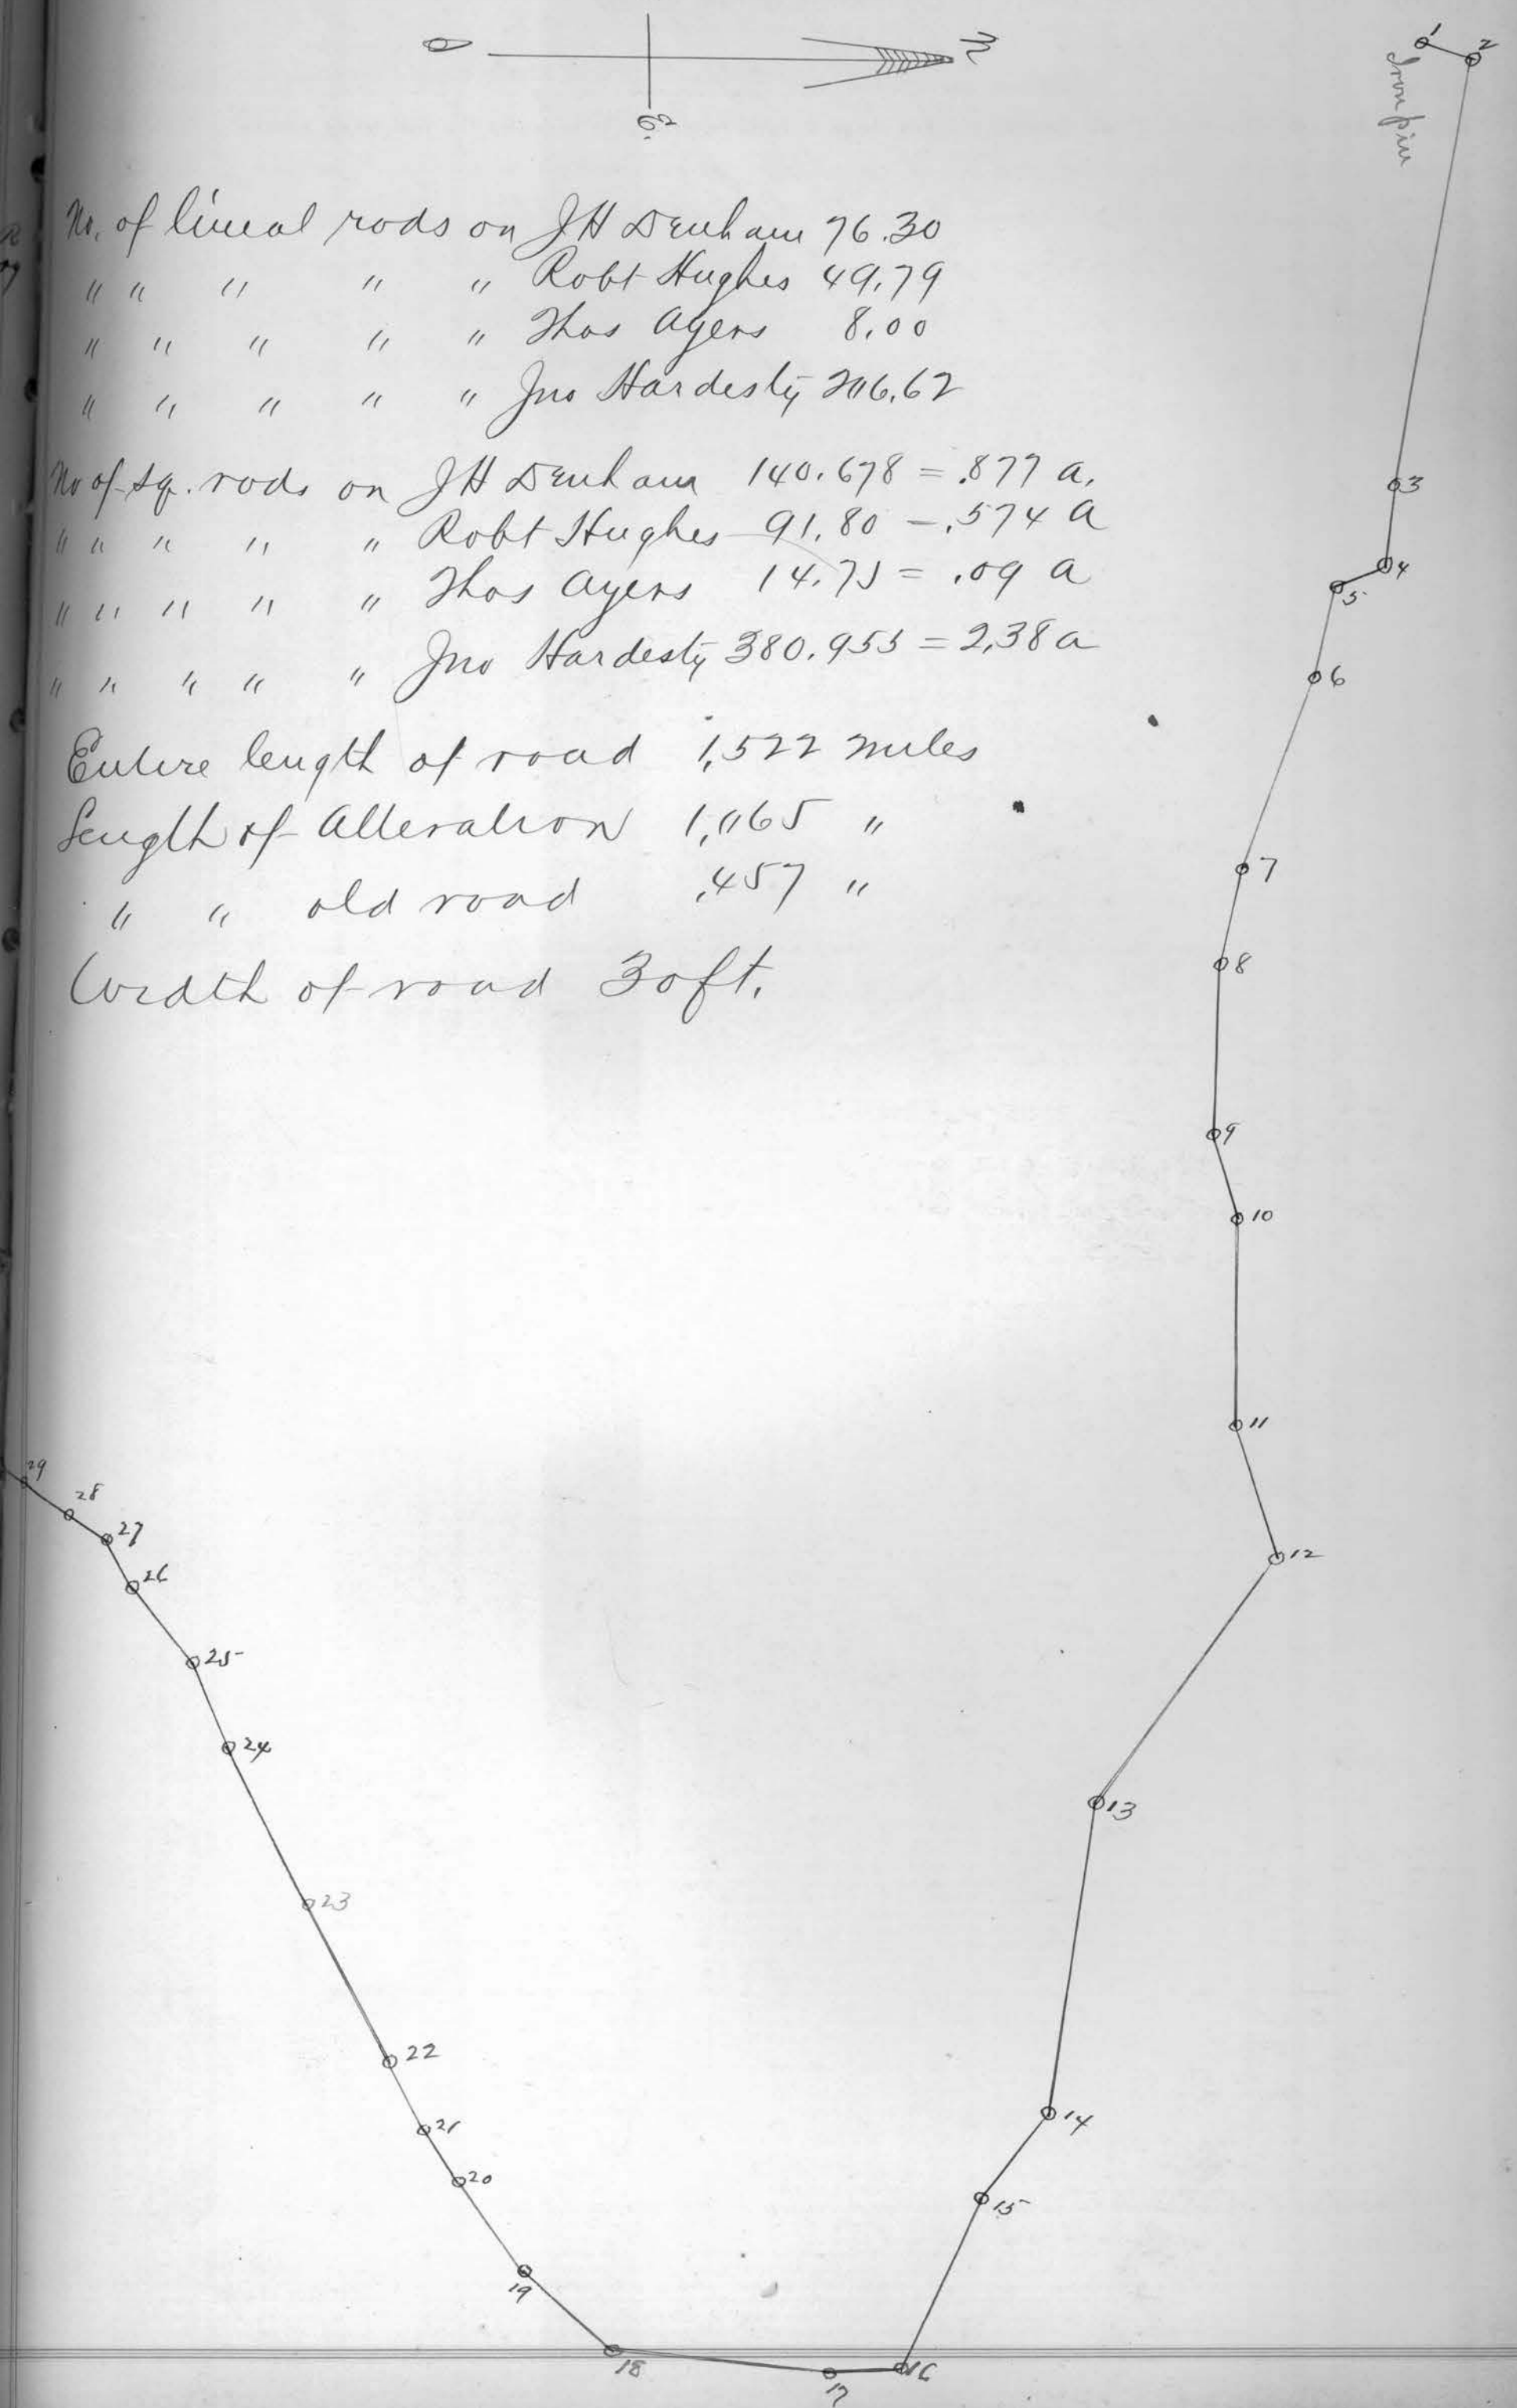 N
1
2
Iron pin
No. of lineal rods on JH Denham 76.30
" " " " " Robt Hughes 49.79
" " " " " Thos Ayers 8.00
" " " " " Jno Hardesty 206.62
No of sq. rods on JH Denham 140.678 = .877 a.
" " " " " Robt Hughes 91.80 = .574 a
" " " " " Thos Ayers 14.75 = .09 a
" " " " " Jno Hardesty 380.955 = 2.38 a
Entire length of road 1.522 miles
Length of Alteration 1.065 "
" " old road .457 "
Width of road 30ft.
3
4
5
6
7
8
9
10
11
12
13
14
15
16
17
18
19
20
21
22
23
24
25
26
27
28
29